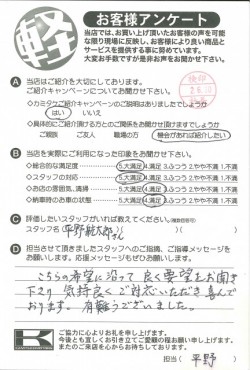 軽
お客様アンケート
当店では、お買い上げ頂いたお客様の声を可能
な限り現場に反映し、お客様により良い商品と
サービスを提供する事に努めています。
大変お手数ですが是非お声をお聞かせ下さい。
A 当店はご紹介を大切にしております。
ご紹介キャンペーンについてお聞かせ下さい?
◇カミタケご紹介キャンペーンのご説明はありましたでしょうか
はい いいえ
◇具体的にご紹介頂ける方とのご関係をお聞かせ頂けますでしょうか
ご親族 ご友人 職場の方 機会があれば紹介したい
B 当店を実際にご利用になった印象をお聞かせ下さい。
◇総合的な満足度 5.大満足 4.満足 3.ふつう 2.やや不満 1.不満
◇スタッフの対応 5.大満足 4.満足 3.ふつう 2.やや不満 1.不満
◇お店の雰囲気、清掃 5.大満足 4.満足 3.ふつう 2.やや不満 1.不満
◇納車時のお車の状態 5.大満足 4.満足 3.ふつう 2.やや不満 1.不満
C 評価したいスタッフがいれば教えてください。(複数回答可)
スタッフ名( 平野純太郎さん )
D 担当させて頂きましたスタッフへのご指摘、ご指導メッセージをお
願いします。応援メッセージもぜひお願いします。
こちらの希望に沿って良く要望をお聞き
下さり 気持良くご対応いただき喜んで
おります。有難うございました。
K
ご協力に心よりお礼を申し上げます。
今後とも宜しくお引き立てご愛顧の程お願い申し上げます。
またのご来店を心からお待ちしております。
担当( 平野 )